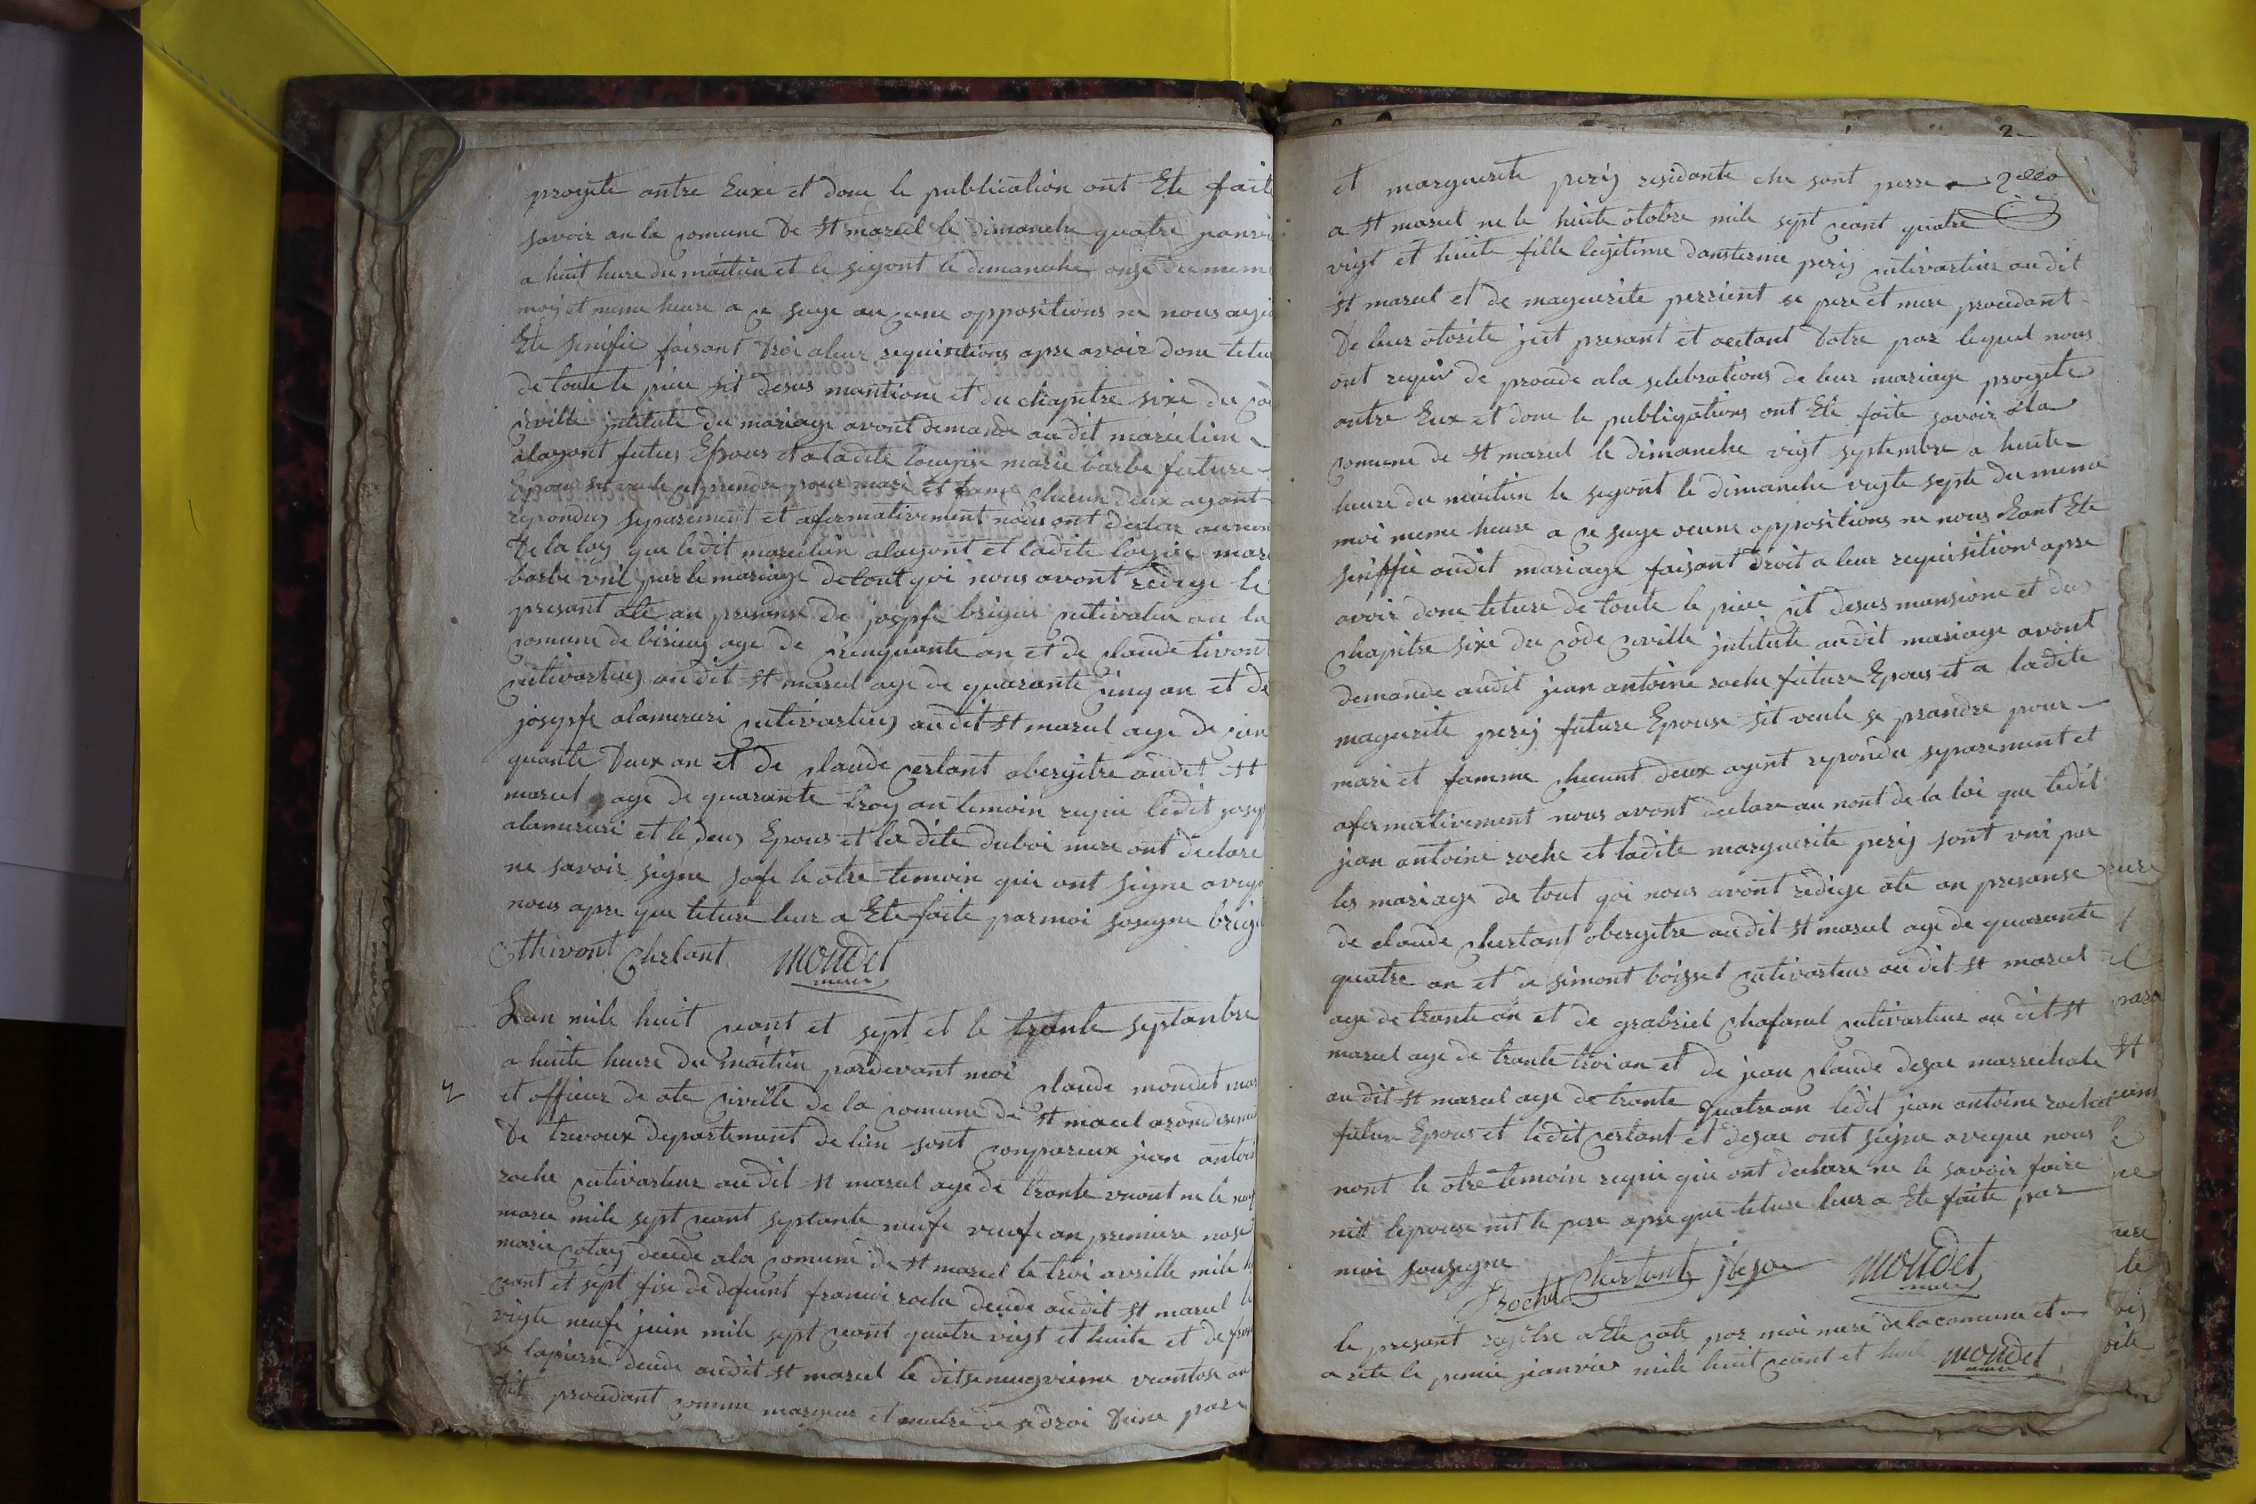 proyete antre Euxe et donc le publication ont Ete fait
savoir an la comune de st marcel le dimanche quatre janvi
a huit heure du maitin et le sigont le dimanche onze du meme
moy et meme heure a ce suge au cune oppositions ne nous aiy
Ete sinifie faisant droi aleur requisitions apre avoir done letu
de toute le piece sit desus mantione et du chapitre sixe du co
civille intitute du mariage avont demande au dit marcelin
alagont futur Epous et a ladite louise marie barbe future
Epouse sit veule ce prendre pour mari et fame chacun deux ayant
repondu separement et afermativement nous ont declare au nom
de la loy que ledit marcelin alagont et ladite louise mari
barbe unit par le mariage de tout qoi nous avont redige le
presant ate an presanse de josepfe brigue cutivateur an la
comune de bisieux age de cinquante an et de claude tivont
cutivarteur au dit st marcel age de quarante cinq an et de
josepfe alamercuri cutivarteur au dit st marcel age de cin
quante deux an et de claude certant obergitre au dit st
marcel age de quarante troy an temoin requi ledit josep
alamercuri et le deux Epous et la dite duboi mere ont declare
ne savoir signe sofe le otre temoin qui ont signe aveqe
nous apre que leture leur a Ete faite par moi sousigne brige
thivont Chertant moudet
maire
Lan mile huit cent et sept et le trante septanbre
a huite heure du maitin pardevant moi claude moudet mai
2 et officier de ate civille de la comune de st marcel arondiseme
de trevoux departement de lain sont conparceux jean antoi
roche cutivarteur au dit st marcel age de trante unont ne le
marce mile sept cent septante neufe veufe an premiere nose
marie cotay decede a la comune de st marcel le troi avrille mile h
cent et sept fise de defeunt francoi roche decede audit st marcel le
vigte neufe juin mile sept cent quatre vigt et huite et de fran
se lapierre decede audit st marcel le dit ventose an
dit procedant comme majeur et metre de se droi dune par
et marguerite perij residante che sont perre
a st marcel ne le huite otobre mile sept cent quatre
vigt et huite fille legitime perij cutivarteur audit
st marcel et de maguerite perrient se pere et mere procedant
de leur otorite jsit presant et dotre par lequel nous
ont requi de procede a la selebrations de leur mariage proyete
antre Eux et donc le publigations ont Ete faite savoir a la
comune de st marcel le dimanche vigt septembre a huite
heure du maitin le segont le dimanche vigte septe du meme
moi meme heure a ce suge ocune oppositions ne nous Eant Ete
siniffie audit mariage faisant droit a leur requisitions apre
avoir done leture de toute le piece sit desus mansione et du
chapitre sixe du code civille intitute audit mariage avont
demande audit jean antoine roche future Epous et a ladite
maguerite perij future Epouse sit veule se prandre pour
mari et famme checunt deux ayent repondu separement et
afermativement nous avont declare au nont de la loi que ledit
jean antoine roche et ladite marguerite perij sont uni par
les mariage de tout qoi nous avont redige ate an presanse
de claude chertant obergitre audit st marcel age de quarante
quatre an et de simont boisset cutivarteur audit st marcel
age de trante an et de grabriel chafanel cutivarteur au dit st
marcel age de trante troi an et de jean claude desac marrechale
au dit st marcel age de trante quatre an ledit jean antoine roche
future Epous et ledit certant et desac ont signe aveque nous
nont le otre temoin requi qui ont declare ne le savoir faire
nit lepouse nit le pere apre que leture leur a Ete faite par
moi sousigne
Roche Chertant moudet
maire
le presant regitre a Ete cote par moi mere de la comune et
a rete le premie jeanvier mile huit cent et huit moudet
maire